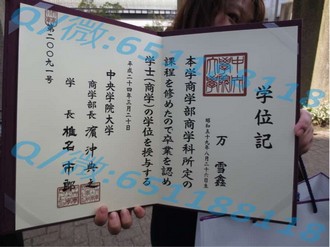 学位記
万 雪鑫
昭和五十九年八月二十六日生
本学商学部商学科所定の
課程を修めたので卒業を認め
学士(商学)の学位を授与する
平成二十四年三月二十日
中央学院大学
商学部長 濱沖典之
学長 椎名市郎
第二〇〇九一号
Q/微:651188118
Q/微:651188118